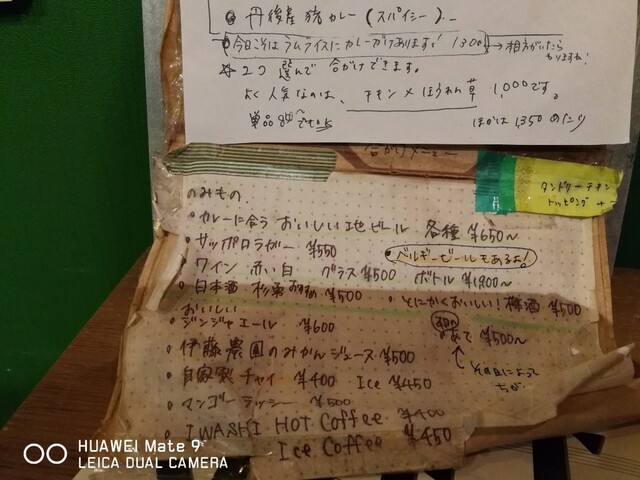 丹後産 猪カレー (スパイシー)
今日こそはラムライスにカレーかけあります! 1300
2コ 選んで 合がけできます。
よく人気なのは、 チキン×ほうれん草 1,000です。
単品
ほかは 1,350
合がけメニュー
タンドリーチキン
トッピング +
のみもの
・カレーに合う おいしい地ビール 各種 ¥650〜
・サッポロラガー ¥550
・ベルギービールもあるよ!
・ワイン 赤い白 グラス¥500 ボトル ¥1,900〜
・日本酒 ¥500
・とにかくおいしい! 梅酒 ¥500
おいしい
・ジンジャエール ¥600
¥500〜
・伊藤農園のみかんジュース ¥500
その日によって
ちがう
・自家製チャイ ¥400 Ice ¥450
・マンゴーラッシー ¥500
・IWASHI HOT Coffee ¥400
Ice Coffee ¥450
HUAWEI Mate 9
LEICA DUAL CAMERA